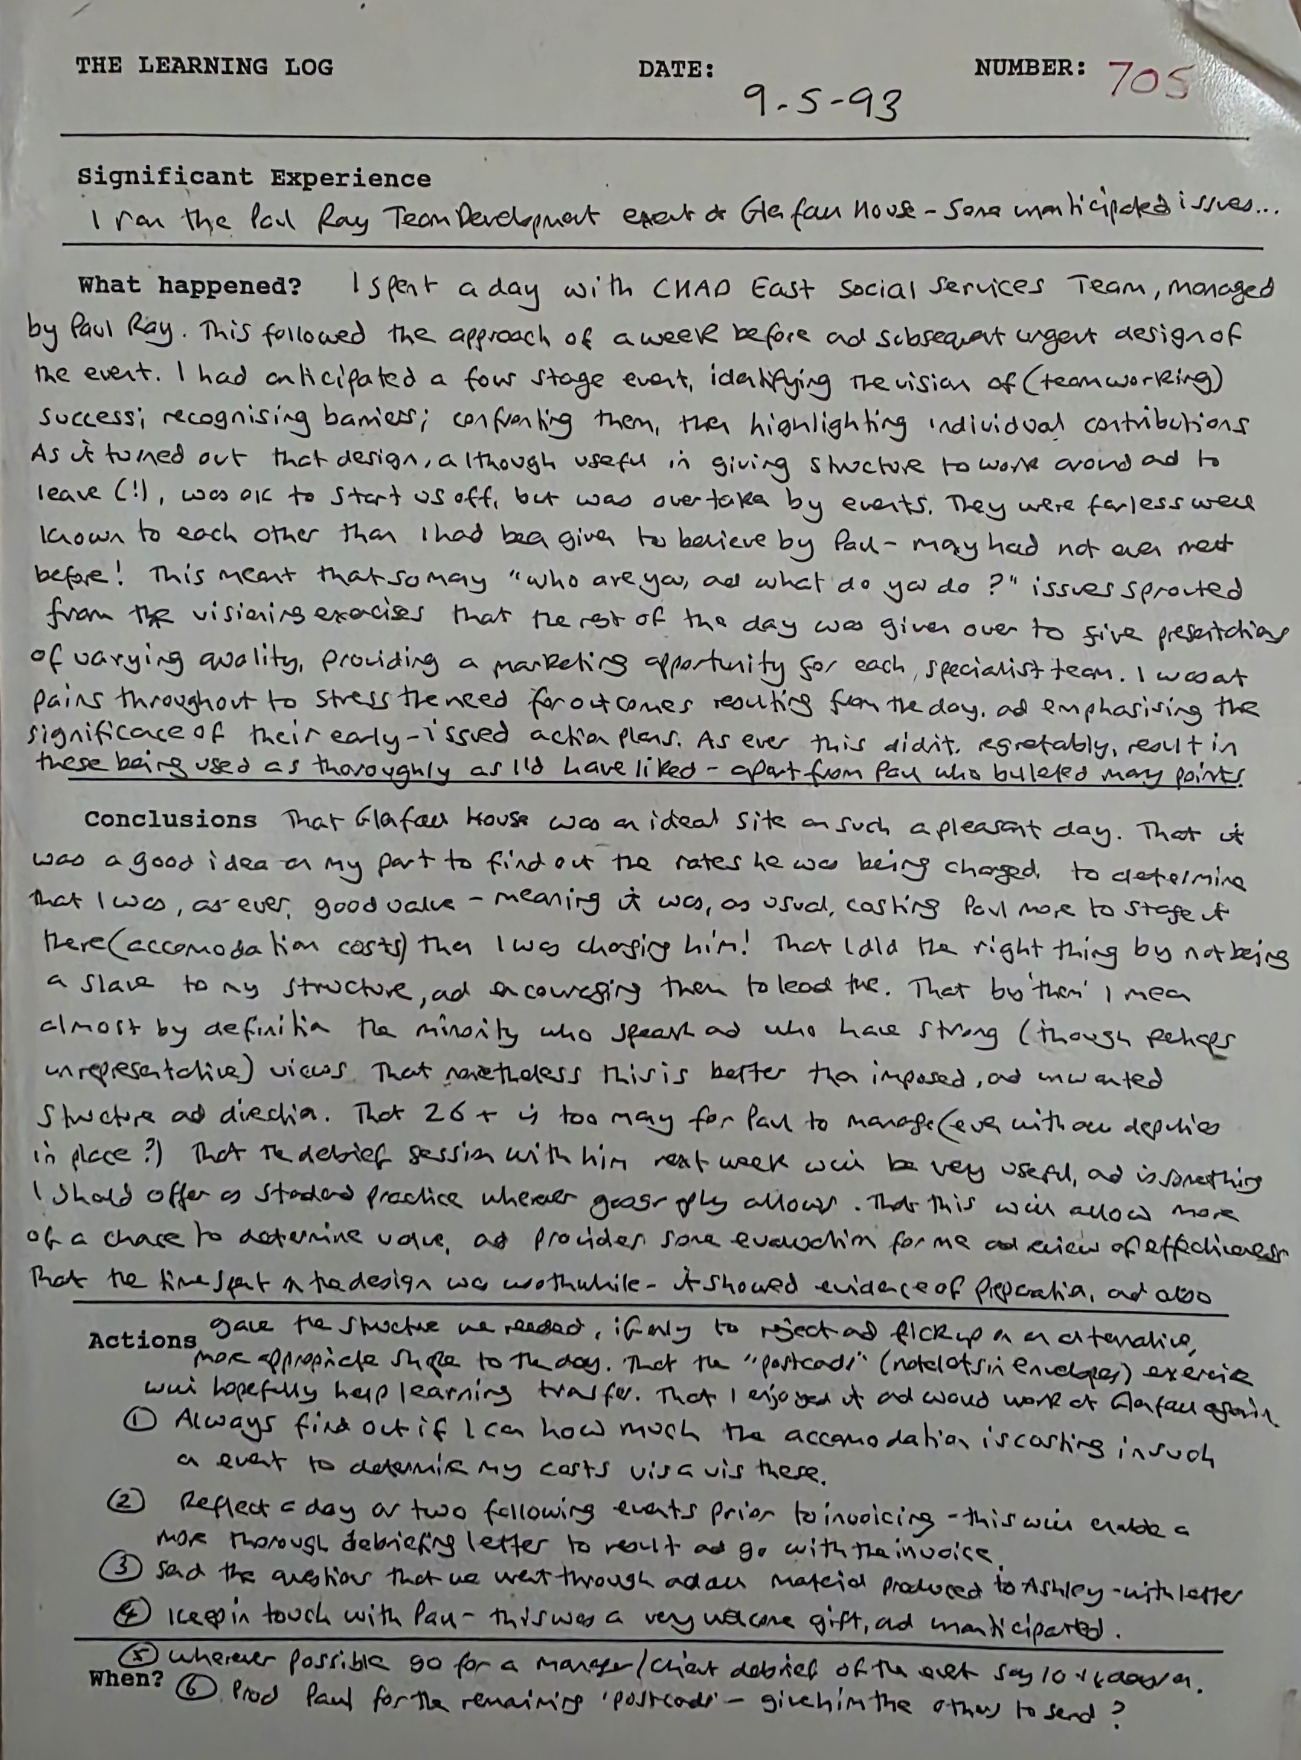 THE LEARNING LOG DATE: NUMBER: 705
9-5-93
Significant Experience
I ran the Paul Ray Team Development event at Glafau House - Some unanticipated issues...
What happened? I spent a day with CHAD East Social Services Team, managed
by Paul Ray. This followed the approach of a week before and subsequent urgent design of
the event. I had anticipated a four stage event, identifying the vision of (teamworking)
success; recognising barriers; confronting them, then highlighting individual contributions
As it turned out that design, although useful in giving structure to work around and to
leave (!), was OK to start us off, but was overtaken by events. They were far less well
known to each other than I had been given to believe by Paul - many had not even met
before! This meant that so many "who are you, and what do you do?" issues sprouted
from the visioning exercises that the rest of the day was given over to five presentations
of varying quality, providing a marketing opportunity for each specialist team. I was at
pains throughout to stress the need for outcomes resulting from the day, and emphasising the
significance of their early-issued action plans. As ever this didn't, regretably, result in
these being used as thoroughly as I'd have liked - apart from Paul who bulleted many points.
Conclusions That Glafau House was an ideal site on such a pleasant day. That it
was a good idea on my part to find out the rates he was being charged, to determine
that I was, as ever, good value - meaning it was, as usual, costing Paul more to stage it
there (accomodation costs) than I was charging him! That I did the right thing by not being
a slave to my structure, and encouraging them to lead the. That by 'them' I mean
almost by definition the minority who speak and who have strong (though perhaps
unrepresentative) views. That nonetheless this is better than imposed, and unwanted
structure and direction. That 26+ is too many for Paul to manage (even with our deputies
in place?) That the debrief session with him next week will be very useful, and is something
I should offer as standard practice wherever geography allows. That this will allow more
of a chance to determine value, and provides some evaluation for me and review of effectiveness
That the time spent on the design was worthwhile - it showed evidence of preparation, and also
gave the structure we needed, if only to reject and pick up on an alternative,
Actions more appropriate shape to the day. That the "postcards" (notelets in envelopes) exercise
will hopefully help learning transfer. That I enjoyed it and would work at Glafau again.
① Always find out if I can how much the accomodation is costing in such
an event to determine my costs vis a vis these.
② Reflect a day or two following events prior to invoicing - this will enable a
more thorough debriefing letter to result and go with the invoice.
③ Send the questions that we went through and all material produced to Ashley - with letter
④ Keep in touch with Paul - this was a very welcome gift, and unanticipated.
⑤ wherever possible go for a manager/client debrief of the event say 10 days on.
When? ⑥ Prod Paul for the remaining 'postcards' - give him the others to send?